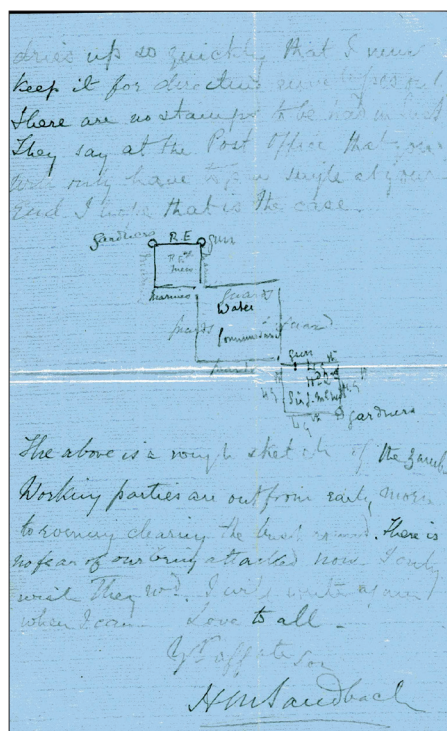 dries up so quickly that I must
keep it for directing envelopes only
There are no stamps to be had in
They say at the Post Office that you
will only have to pay single at your
end. I hope that is the case.
Gardners R.E. Gun
Mess
Marines
Guards
Water
Guards Guards
Commissariat
Guards
Gun
H.Q.
Gardners
The above is a rough sketch of the Zareba
Working parties are out from early morn
to evening clearing the bush round. There is
no fear of our being attacked now I only
wish they wd. I will write again
when I can. Love to all.
Yr affate Son
H M Sandbach